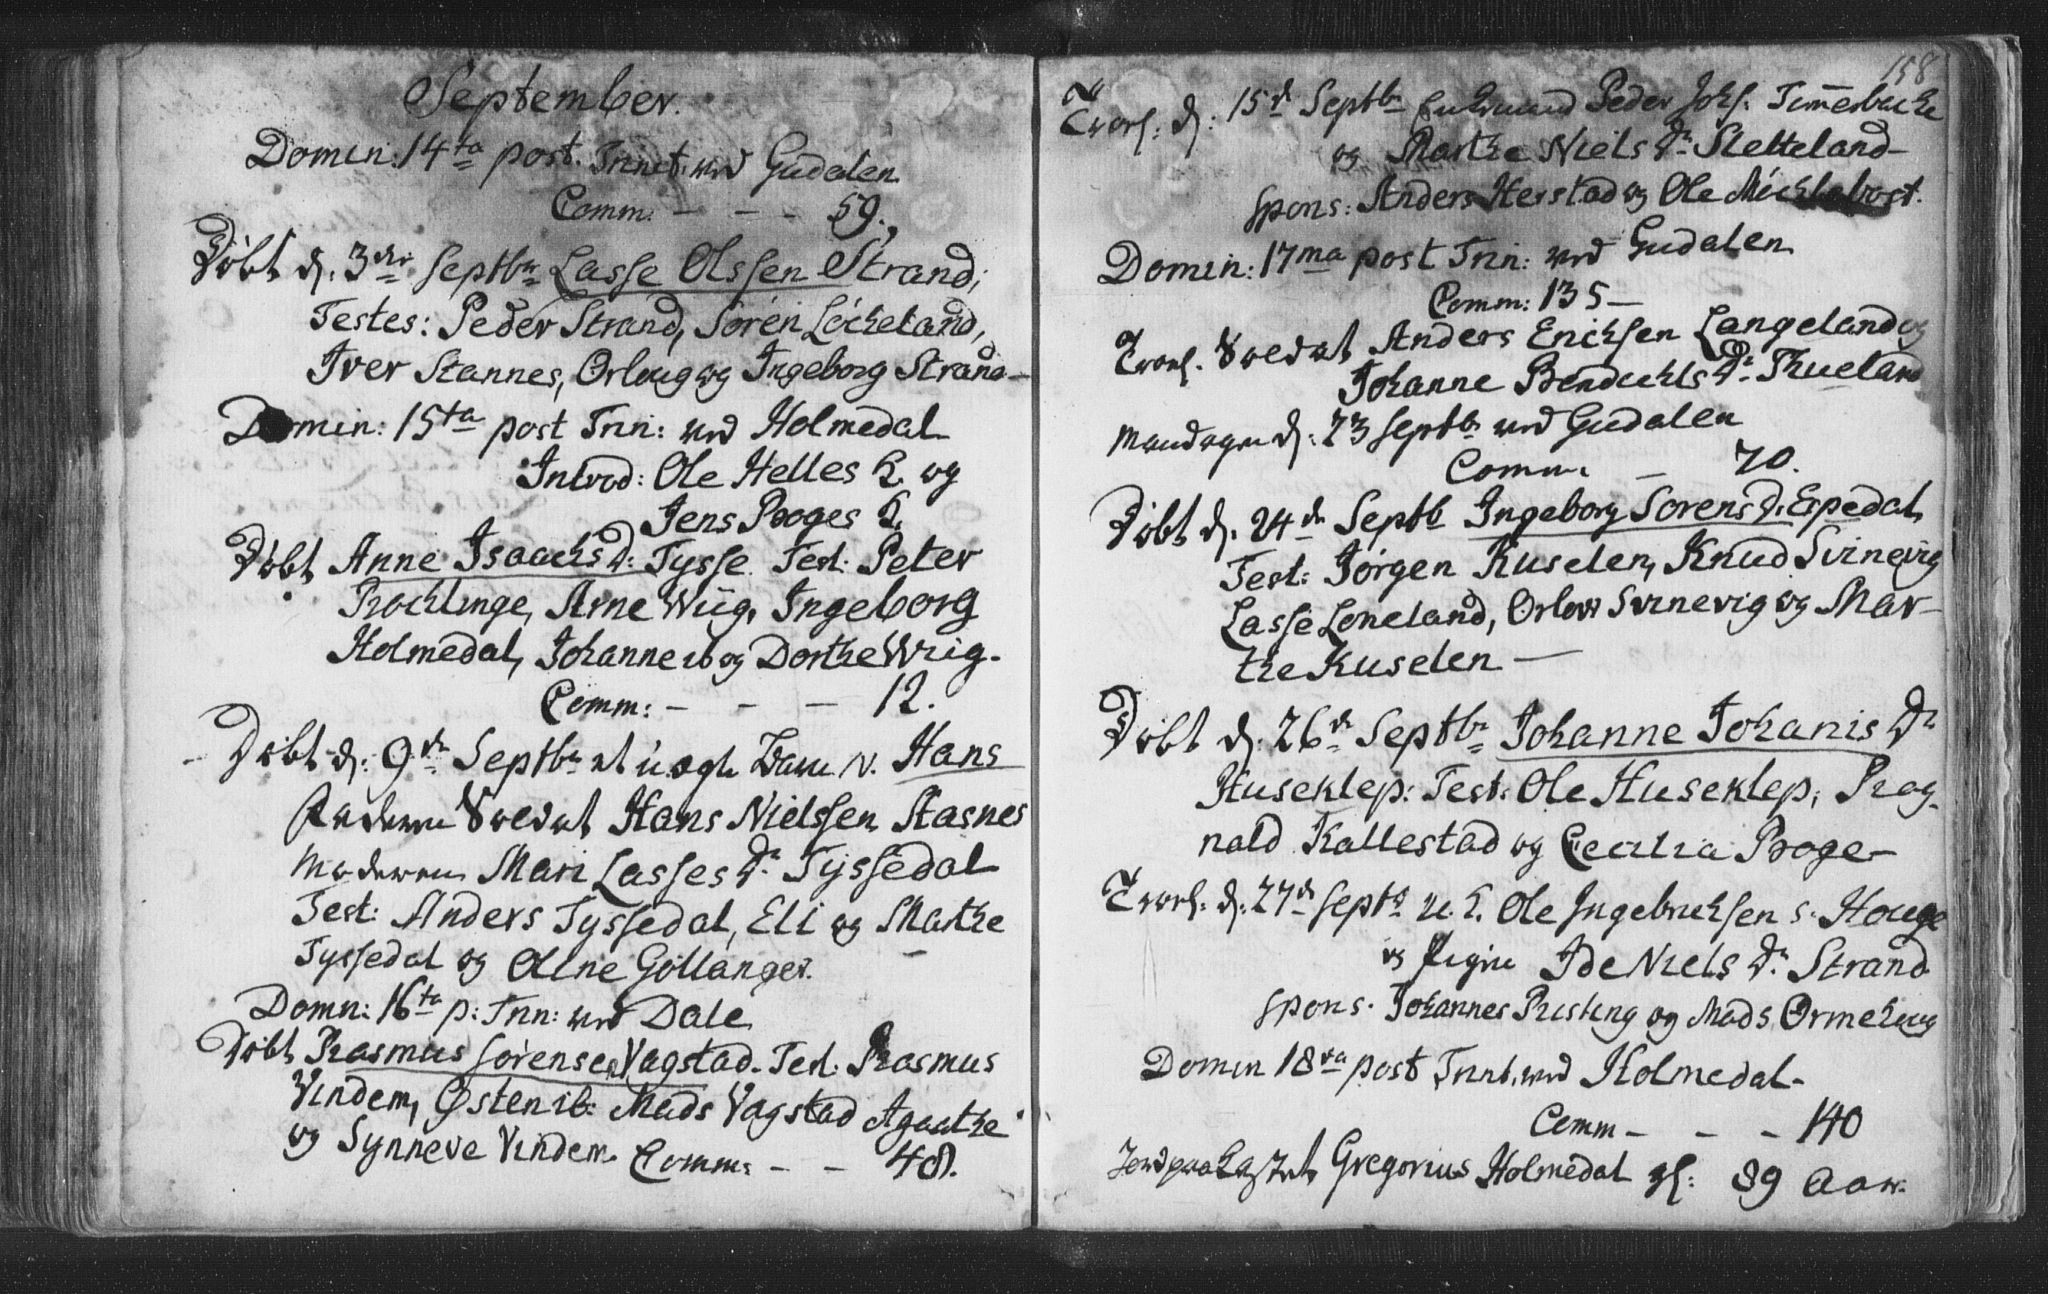 September.
Domin: 14ta post. Trinit. ved Gudalen
Comm: - - - 59.
Döbt d. 3die Septbr Lasse Olssen Strand;
Testes: Peder Strand, Sören Löcheland,
Iver Stannes, Orloug og Ingeborg Strand
Domin: 15ta post Trin: ved Holmedal
Introd: Ole Helles k. og
Jens Boges k.
Döbt Anne Isaachs d: Tysse. Test: Peter
Rochlinge, Arne Wiig, Ingeborg
Holmedal, Johanne ib og Dorthe Wiig.
Comm: - - - 12.
Döbt d. 9de Septbr et uægte Barn N. Hans
Faderen Soldat Hans Nielssen Stasnes
Moderen Mari Lasses dr. Tyssedal
Test: Anders Tyssedal, Eli og Marthe
Tyssedal og Oline Göllanger.
Domn: 16ta p: Trin: ved Dale
Döbt Rasmus Sörensen Vagstad. Test. Rasmus
Vindem, Østen ib: Mads Vagstad Agaathe
og Synneve Vindem. Comm: - - 48.
158
Trol: d: 15de Septbr Peder Johs: Timmerbache
og Marthe Niels dr. Sletteland
Spons: Anders Herstad og Ole Michlebost.
Domin: 17ma post Trin: ved Gudalen
Comm: 135 -
Trol. Soldat Anders Erichsen Langeland og
Johanne Bendichts dr. Thueland
Mandagen d: 23 Septbr ved Gudalen
Comm. - 70.
Döbt d. 24de Septb Ingeborg Sorens d. Espedal
Test: Jörgen Kuselen, Knud Svinevig
Lasse Loneland, Orlow Svinevig og Mar-
the Kuselen -
Döbt d. 26de Septbr Johanne Johanis dr
Huseklep: Test: Ole Huseklep, Rag-
nald Kallestad og Cecilia Boge-
Trol: d: 27de Septbr u. k. Ole Ingebrichsen s. Houge
og Pigen Ide Niels dr. Strand
Spons. Johannes Risting og Mads Ormehoug
Domin 18va post Trinit. ved Holmedal-
Comm - - - 140
Jordpaakastet Gregorius Holmedal gl: 89 Aar.